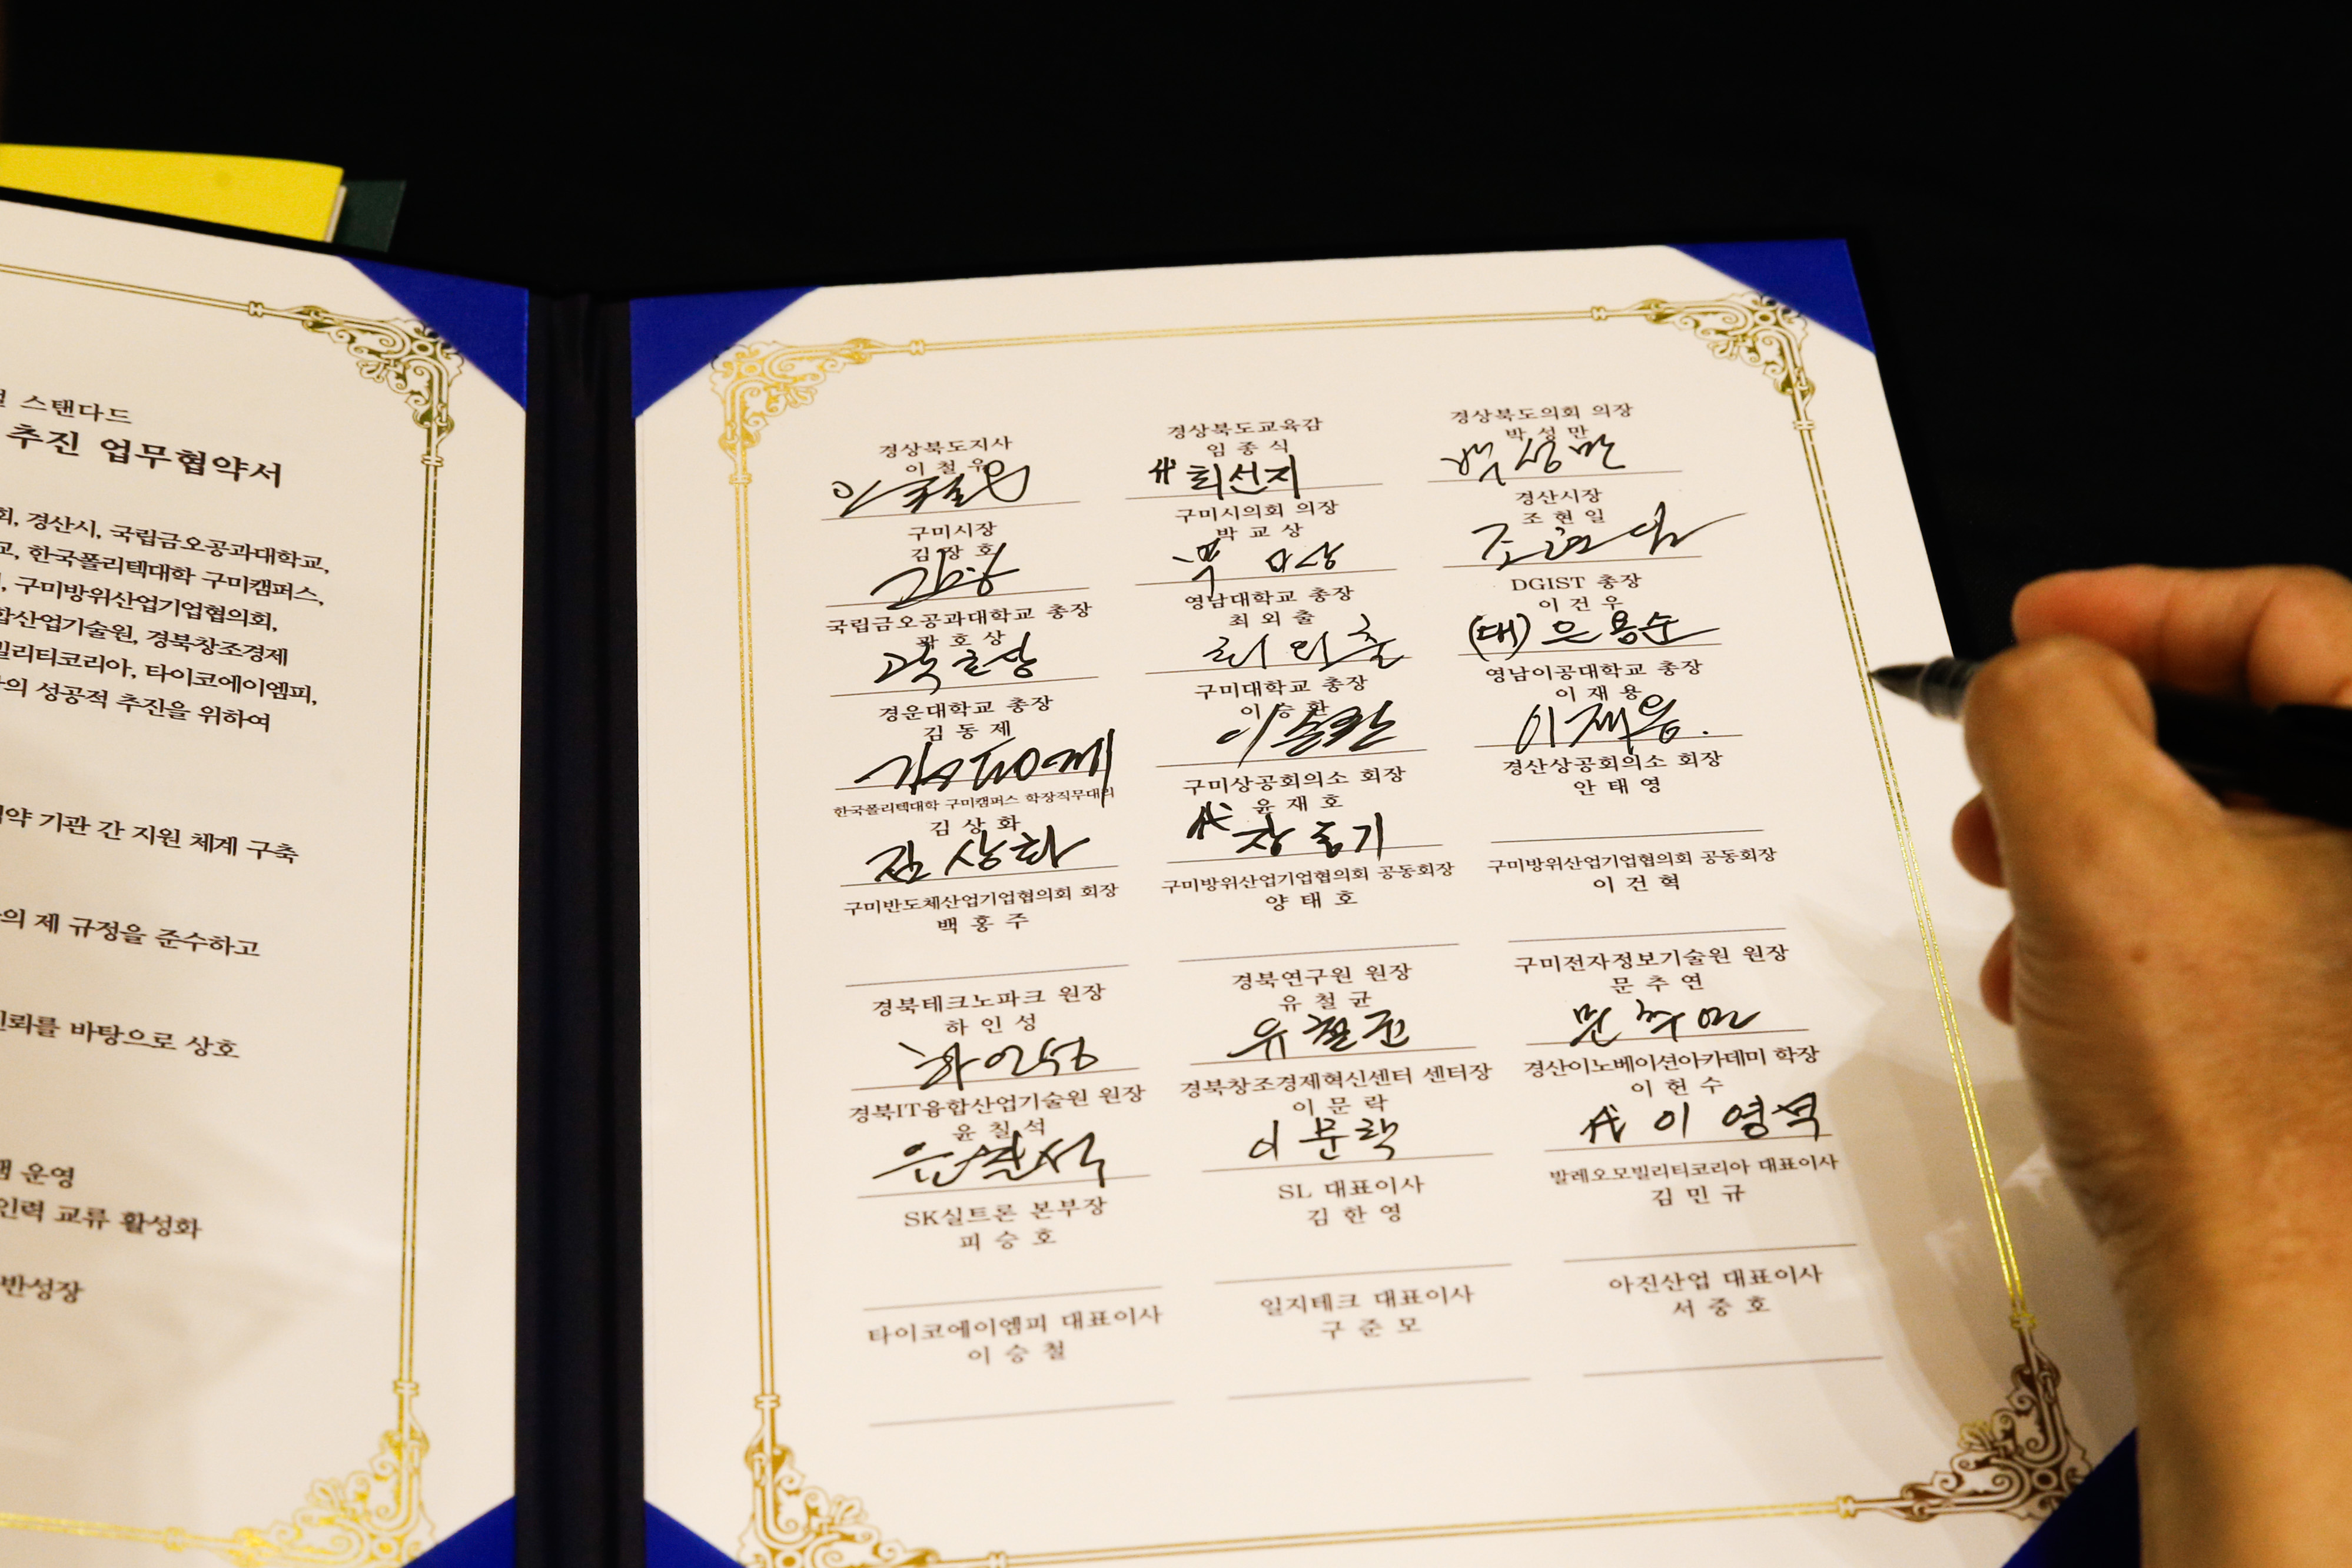 스탠다드
추진 업무협약서
경산시, 국립금오공과대학교,
한국폴리텍대학 구미캠퍼스,
구미방위산업기업협의회,
경북창조경제
타이코에이엠피,
성공적 추진을 위하여
기관 간 지원 체계 구축
제 규정을 준수하고
바탕으로 상호
운영
인력 교류 활성화
경상북도지사
이 철 우
경상북도교육감
임 종 식
代 최선지
경상북도의회 의장
박 성 만
박성만
구미시장
김 장 호
구미시의회 의장
박 교 상
경산시장
조 현 일
조현일
국립금오공과대학교 총장
곽 호 상
곽호상
영남대학교 총장
최 외 출
최외출
DGIST 총장
이 건 우
(대) 은용순
경운대학교 총장
김 동 제
김동제
구미대학교 총장
이 승 환
이승환
영남이공대학교 총장
이 재 용
이재용.
한국폴리텍대학 구미캠퍼스 학장직무대리
김 상 화
김상화
구미상공회의소 회장
윤 재 호
代
경산상공회의소 회장
안 태 영
구미반도체산업기업협의회 회장
백 홍 주
구미방위산업기업협의회 공동회장
양 태 호
구미방위산업기업협의회 공동회장
이 건 혁
경북테크노파크 원장
하 인 성
하인성
경북연구원 원장
유 철 균
유철균
구미전자정보기술원 원장
문 추 연
문추연
경북IT융합산업기술원 원장
윤 칠 석
윤칠석
경북창조경제혁신센터 센터장
이 문 락
이문락
경산이노베이션아카데미 학장
이 헌 수
代 이영석
SK실트론 본부장
피 승 호
SL 대표이사
김 한 영
발레오모빌리티코리아 대표이사
김 민 규
타이코에이엠피 대표이사
이 승 철
일지테크 대표이사
구 준 모
아진산업 대표이사
서 중 호